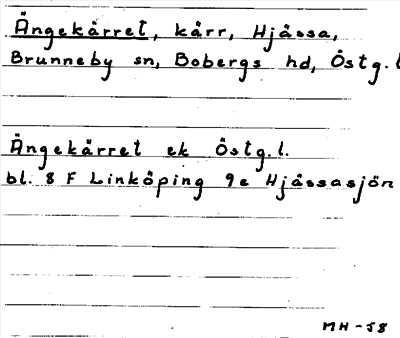 Ängekärret, kärr, Hjässa,
Brunneby sn, Bobergs hd, Östg.l
Ängekärret ek Östg.l.
bl. 8 F Linköping 9e Hjässasjön
MH-58